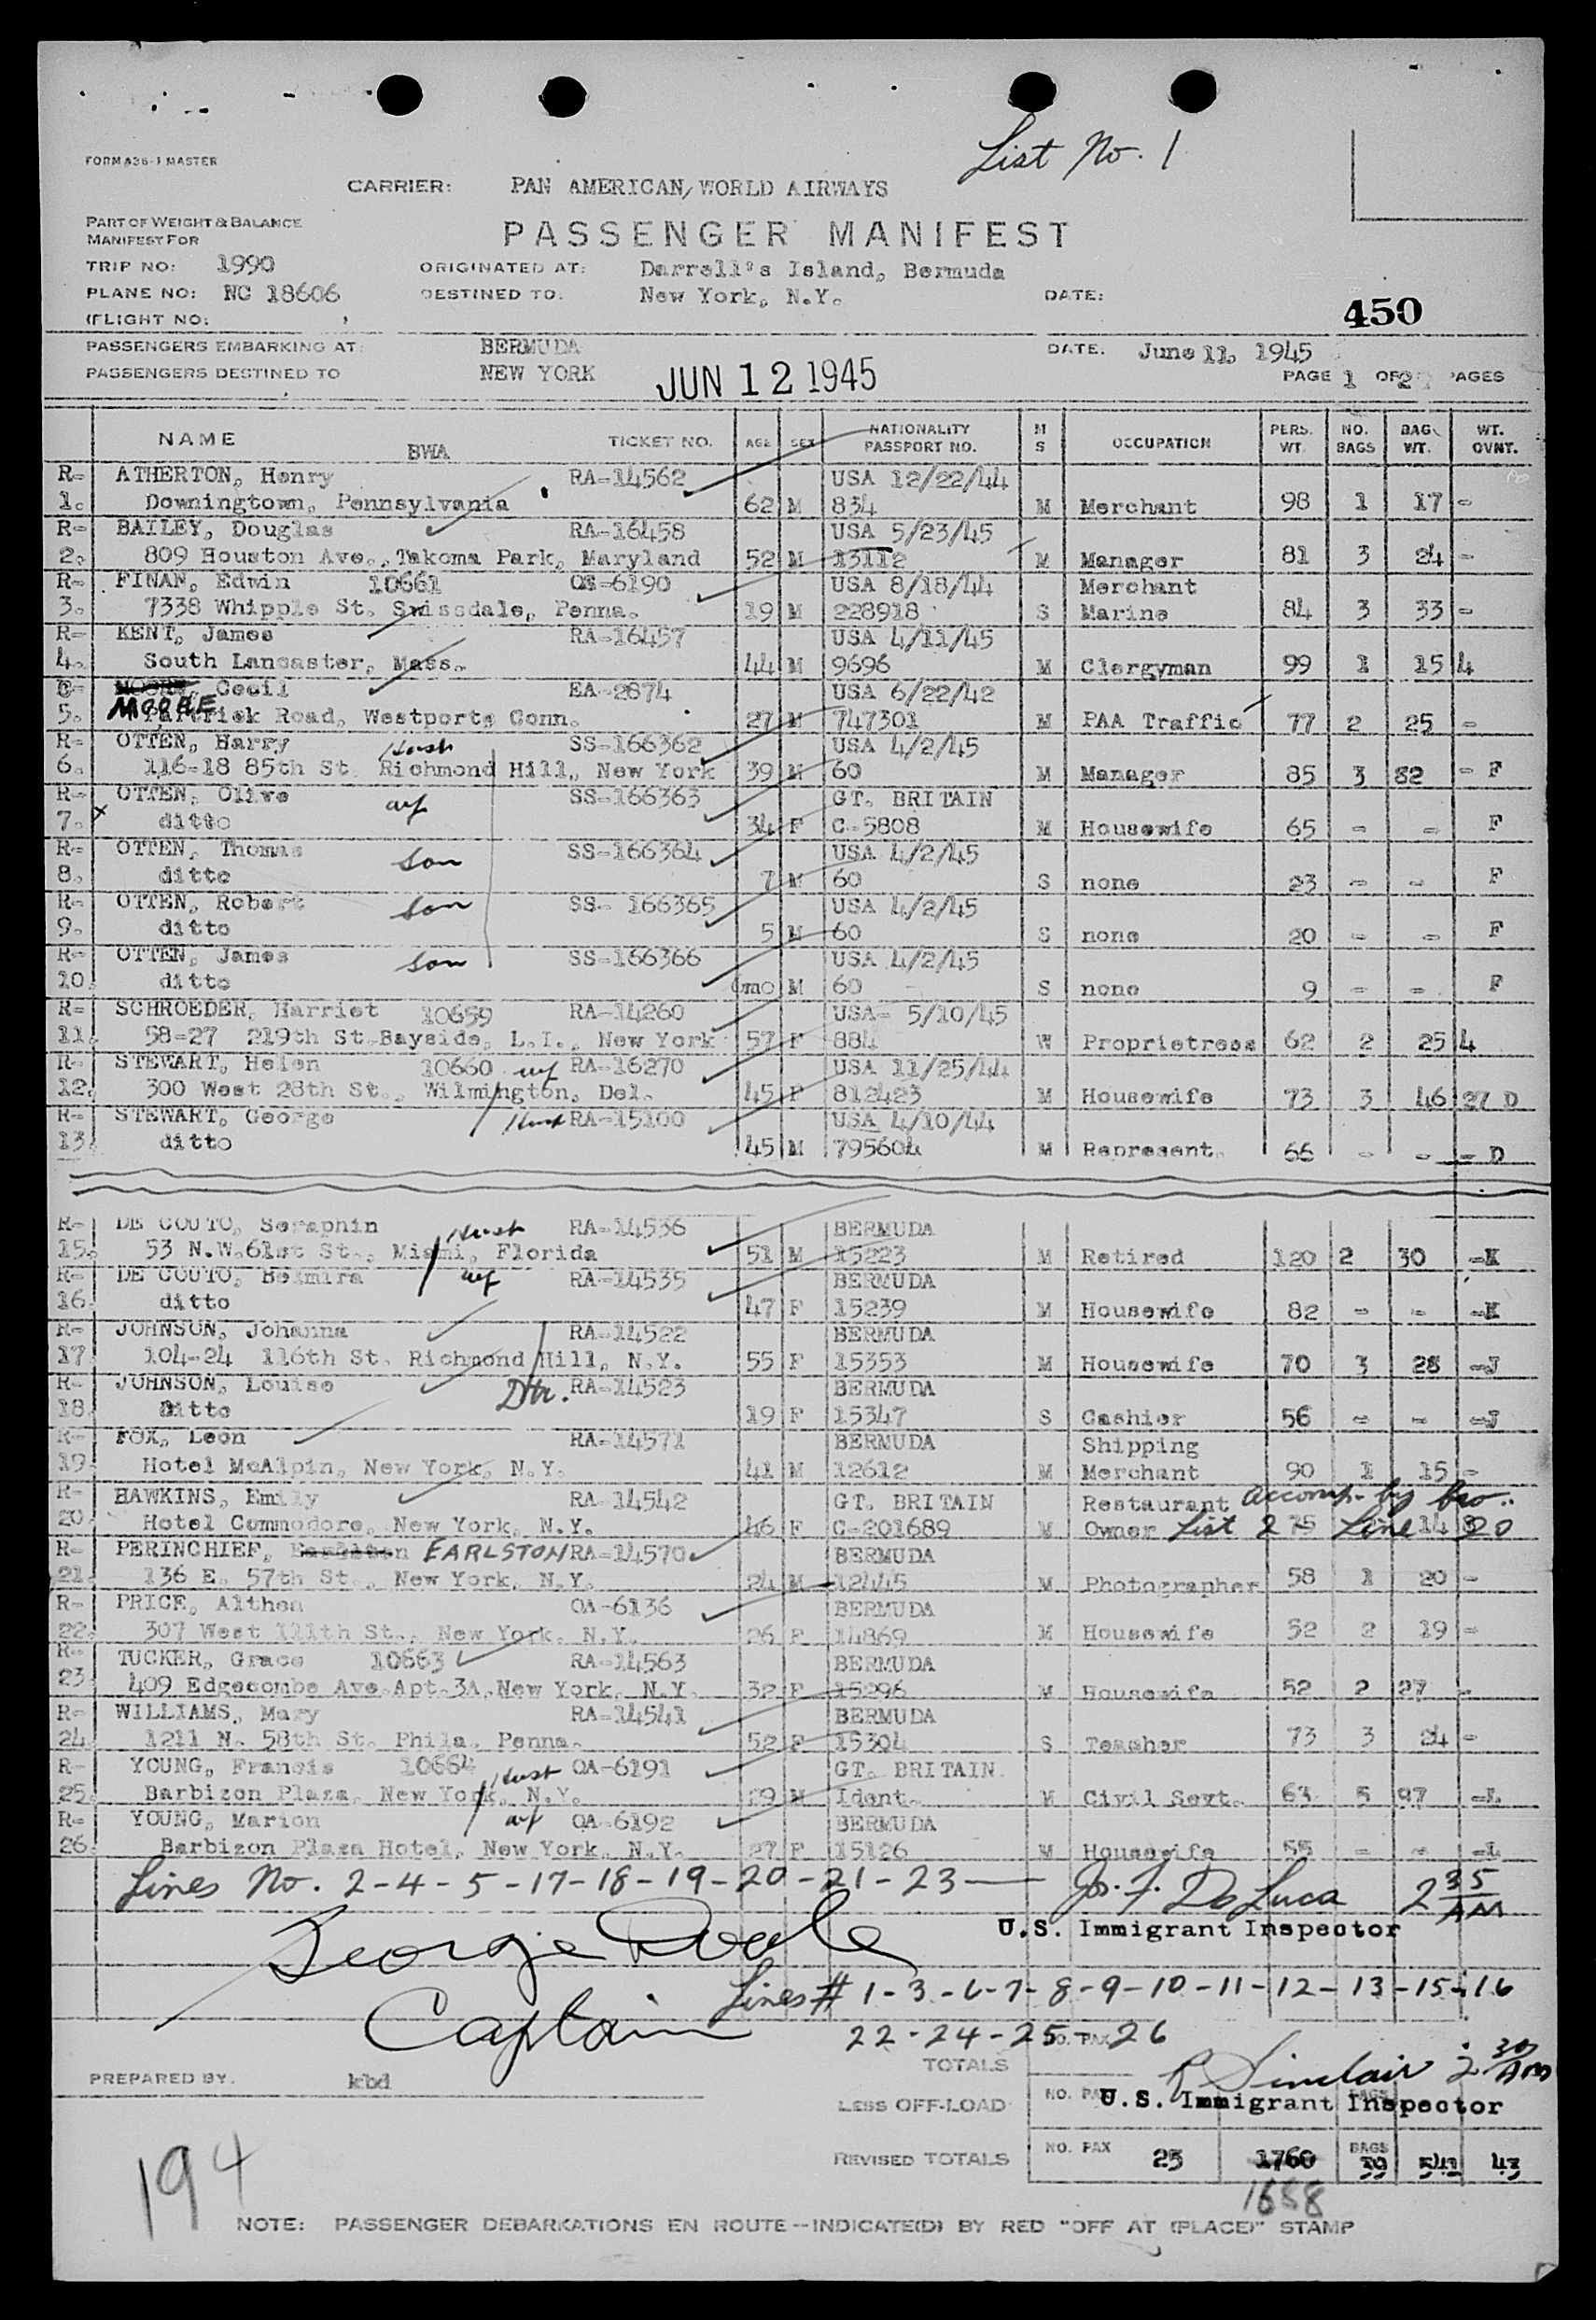 List No. 1
FORM A36-1 MASTER
CARRIER: PAN AMERICAN/WORLD AIRWAYS
PART OF WEIGHT & BALANCE
MANIFEST FOR
PASSENGER MANIFEST
TRIP NO: 1990 ORIGINATED AT: Darrell's Island, Bermuda
PLANE NO: NC 18606 DESTINED TO: New York, N.Y. DATE:
(FLIGHT NO: 450
PASSENGERS EMBARKING AT: BERMUDA DATE: June 11, 1945
PASSENGERS DESTINED TO NEW YORK JUN 12 1945 PAGE 1 OF 2 PAGES
NAME BWA TICKET NO. AGE SEX NATIONALITY PASSPORT NO. M S OCCUPATION PERS. WT. NO. BAGS BAG. WT. WT. OVNT.
R- ATHERTON, Henry RA-14562 USA 12/22/44
1. Downingtown, Pennsylvania 62 M 834 M Merchant 98 1 17 -
R- BAILEY, Douglas RA-16458 USA 5/23/45
2. 809 Houston Ave., Takoma Park, Maryland 52 M 13112 M Manager 81 3 24 -
R- FINAN, Edwin 10661 OA-6190 USA 8/18/44 Merchant
3. 7338 Whipple St. Swissdale, Penna. 19 M 228918 S Marine 84 3 33 -
R- KENT, James RA-16457 USA 4/11/45
4. South Lancaster, Mass. 44 M 9696 M Clergyman 99 1 15 4
Cecil EA-2874 USA 6/22/42
MOORE
5. Road, Westport, Conn. 27 M 747301 M PAA Traffic 77 2 25 -
R- OTTEN, Harry Husb SS-166362 USA 4/2/45
6. 116-18 85th St. Richmond Hill, New York 39 M 60 M Manager 85 3 82 - F
R- OTTEN, Olive wf SS-166363 GT. BRITAIN
7. x ditto 34 F C-5808 M Housewife 65 - - F
R- OTTEN, Thomas Son SS-166364 USA 4/2/45
8. ditto 7 M 60 S none 23 - - F
R- OTTEN, Robert Son SS- 166365 USA 4/2/45
9. ditto 5 M 60 S none 20 - - F
R- OTTEN, James Son SS-166366 USA 4/2/45
10. ditto 6mo M 60 S none 9 - - F
R- SCHROEDER, Harriet 10659 RA-14260 USA- 5/10/45
11. 58-27 219th St. Bayside, L.I., New York 57 F 884 W Proprietress 62 2 25 4
R- STEWART, Helen 10660 wf RA-16270 USA 11/25/44
12. 300 West 28th St., Wilmington, Del. 45 F 812423 M Housewife 73 3 46 27 D
R- STEWART, George Husb RA-15100 USA 4/10/44
13. ditto 45 M 795604 M Represent. 66 - - - D
R- DE COUTO, Seraphin Husb RA-14536 BERMUDA
15. 53 N.W. 61st St., Miami, Florida 51 M 15223 M Retired 120 2 30 -K
R- DE COUTO, Belmira wf RA-14535 BERMUDA
16. ditto 47 F 15239 M Housewife 82 - - -K
R- JOHNSON, Johanna RA-14522 BERMUDA
17. 104-24 116th St. Richmond Hill, N.Y. 55 F 15353 M Housewife 70 3 28 -J
R- JOHNSON, Louise Dtr. RA-14523 BERMUDA
18. Ditto 19 F 15347 S Cashier 56 - - -J
R- FOX, Leon RA-14571 BERMUDA Shipping
19. Hotel McAlpin, New York, N.Y. 41 M 12612 M Merchant 90 1 15 -
R- HAWKINS, Emily RA-14542 GT. BRITAIN Restaurant accomp. by bro..
20. Hotel Commodore, New York, N.Y. 46 F C-201689 M Owner List 2 75 Line 14 20
R- PERINCHIEF, EARLSTON RA-14570 BERMUDA
21. 136 E. 57th St., New York, N.Y. 24 M 12445 M Photographer 58 1 20 -
R- PRICE, Althea OA-6136 BERMUDA
22. 307 West 111th St., New York, N.Y. 26 F 14869 M Housewife 52 2 19 -
R- TUCKER, Grace 10663 RA-14563 BERMUDA
23. 409 Edgecombe Ave. Apt. 3A, New York, N.Y. 32 F 15296 M Housewife 52 2 27 -
R- WILLIAMS, Mary RA-14541 BERMUDA
24. 1211 N. 58th St. Phila. Penna. 52 F 15304 S Teacher 73 3 24 -
R- YOUNG, Francis 10664 Husb OA-6191 GT. BRITAIN
25. Barbizon Plaza, New York, N.Y. 29 M Ident. M Civil Sevt. 63 5 97 -L
R- YOUNG, Marion wf OA-6192 BERMUDA
26. Barbizon Plaza Hotel, New York, N.Y. 27 F 15126 M Housewife 55 - - -L
Lines No. 2-4-5-17-18-19-20-21-23 Jos. F. De Luca 2 35 AM
U.S. Immigrant Inspector
George Doole
Captain
Lines # 1-3-6-7-8-9-10-11-12-13-15-16
22-24-25-26
NO. PAX
TOTALS
R Sinclair 2 30 AM
PREPARED BY. kbd
LESS OFF-LOAD NO. PAX BAGS
U.S. Immigrant Inspector
REVISED TOTALS NO. PAX 25 1760 BAGS 39 541 43
1688
194
NOTE: PASSENGER DEBARKATIONS EN ROUTE--INDICATE(D) BY RED "OFF AT (PLACE)" STAMP